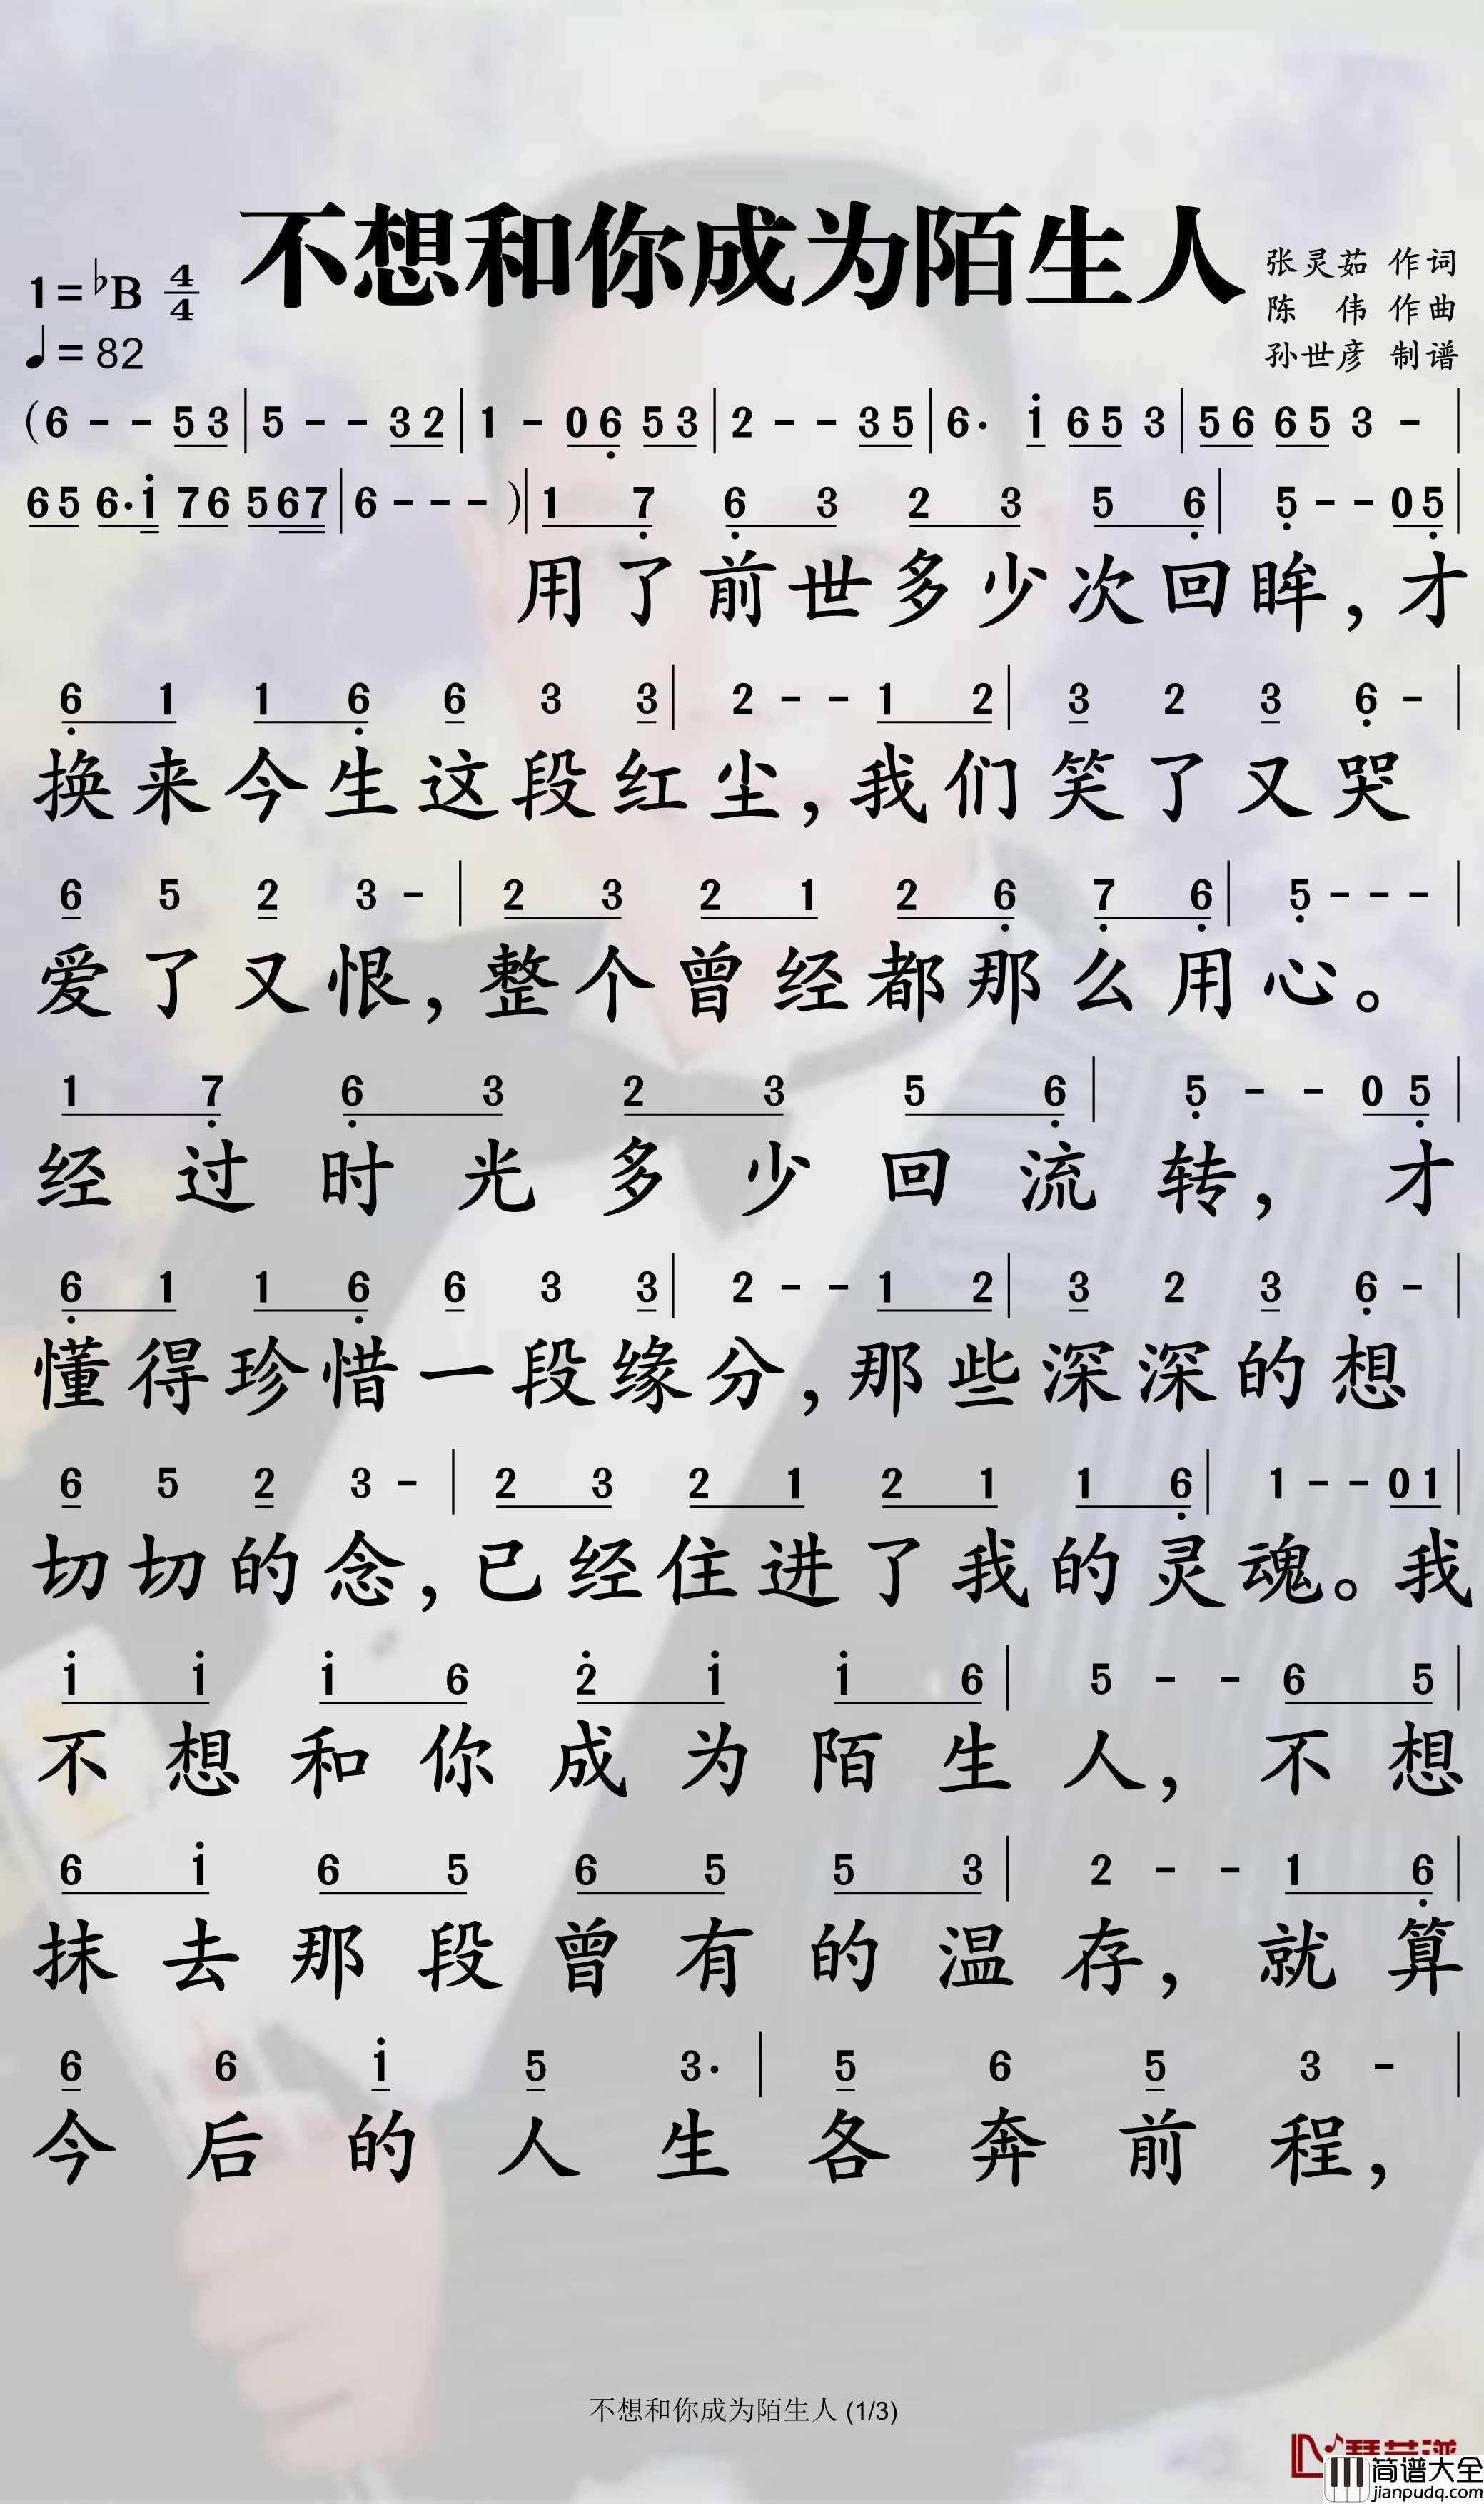 不想和你成为陌生人
1=♭B 4/4
♩=82
张灵茹 作词
陈 伟 作曲
孙世彦 制谱
(6 - - 5 3 | 5 - - 3 2 | 1 - 0 6̣ 5 3 | 2 - - 3 5 | 6· i̇ 6 5 3 | 5 6 6 5 3 - |
6 5 6·i̇ 7 6 5 6 7 | 6 - - - ) | 1 7̣ 6̣ 3 2 3 5 6̣ | 5̣ - - 0 5̣ |
用了前世多少次回眸，才
6̣ 1 1 6̣ 6 3 3 | 2 - - 1 2 | 3 2 3 6̣ - |
换来今生这段红尘，我们笑了又哭
6 5 2 3 - | 2 3 2 1 2 6̣ 7̣ 6̣ | 5̣ - - - |
爱了又恨，整个曾经都那么用心。
1 7̣ 6̣ 3 2 3 5 6̣ | 5̣ - - 0 5̣ |
经过时光多少回流转，才
6̣ 1 1 6̣ 6 3 3 | 2 - - 1 2 | 3 2 3 6̣ - |
懂得珍惜一段缘分，那些深深的想
6 5 2 3 - | 2 3 2 1 2 1 1 6̣ | 1 - - 0 1 |
切切的念，已经住进了我的灵魂。我
i̇ i̇ i̇ 6 2̇ i̇ i̇ 6 | 5 - - 6 5 |
不想和你成为陌生人，不想
6 i̇ 6 5 6 5 5 3 | 2 - - 1 6̣ |
抹去那段曾有的温存，就算
6 6 i̇ 5 3· | 5 6 5 3 - |
今后的人生各奔前程，
不想和你成为陌生人 (1/3)
简谱大全
jianpudq.com